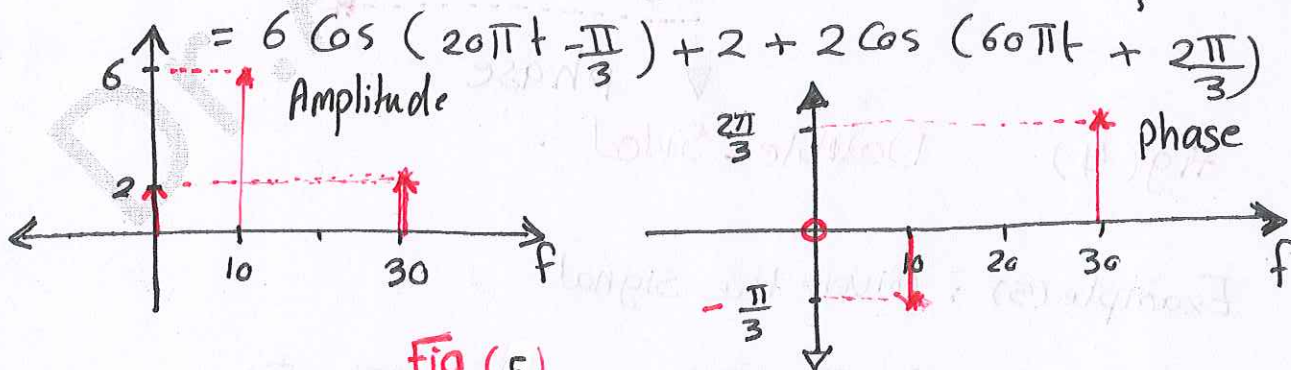 = 6 Cos (20πt - π/3) + 2 + 2 Cos (60πt + 2π/3)
6
Amplitude
2
10
30
f
2π/3
phase
10
20
30
f
- π/3
Fig (5)